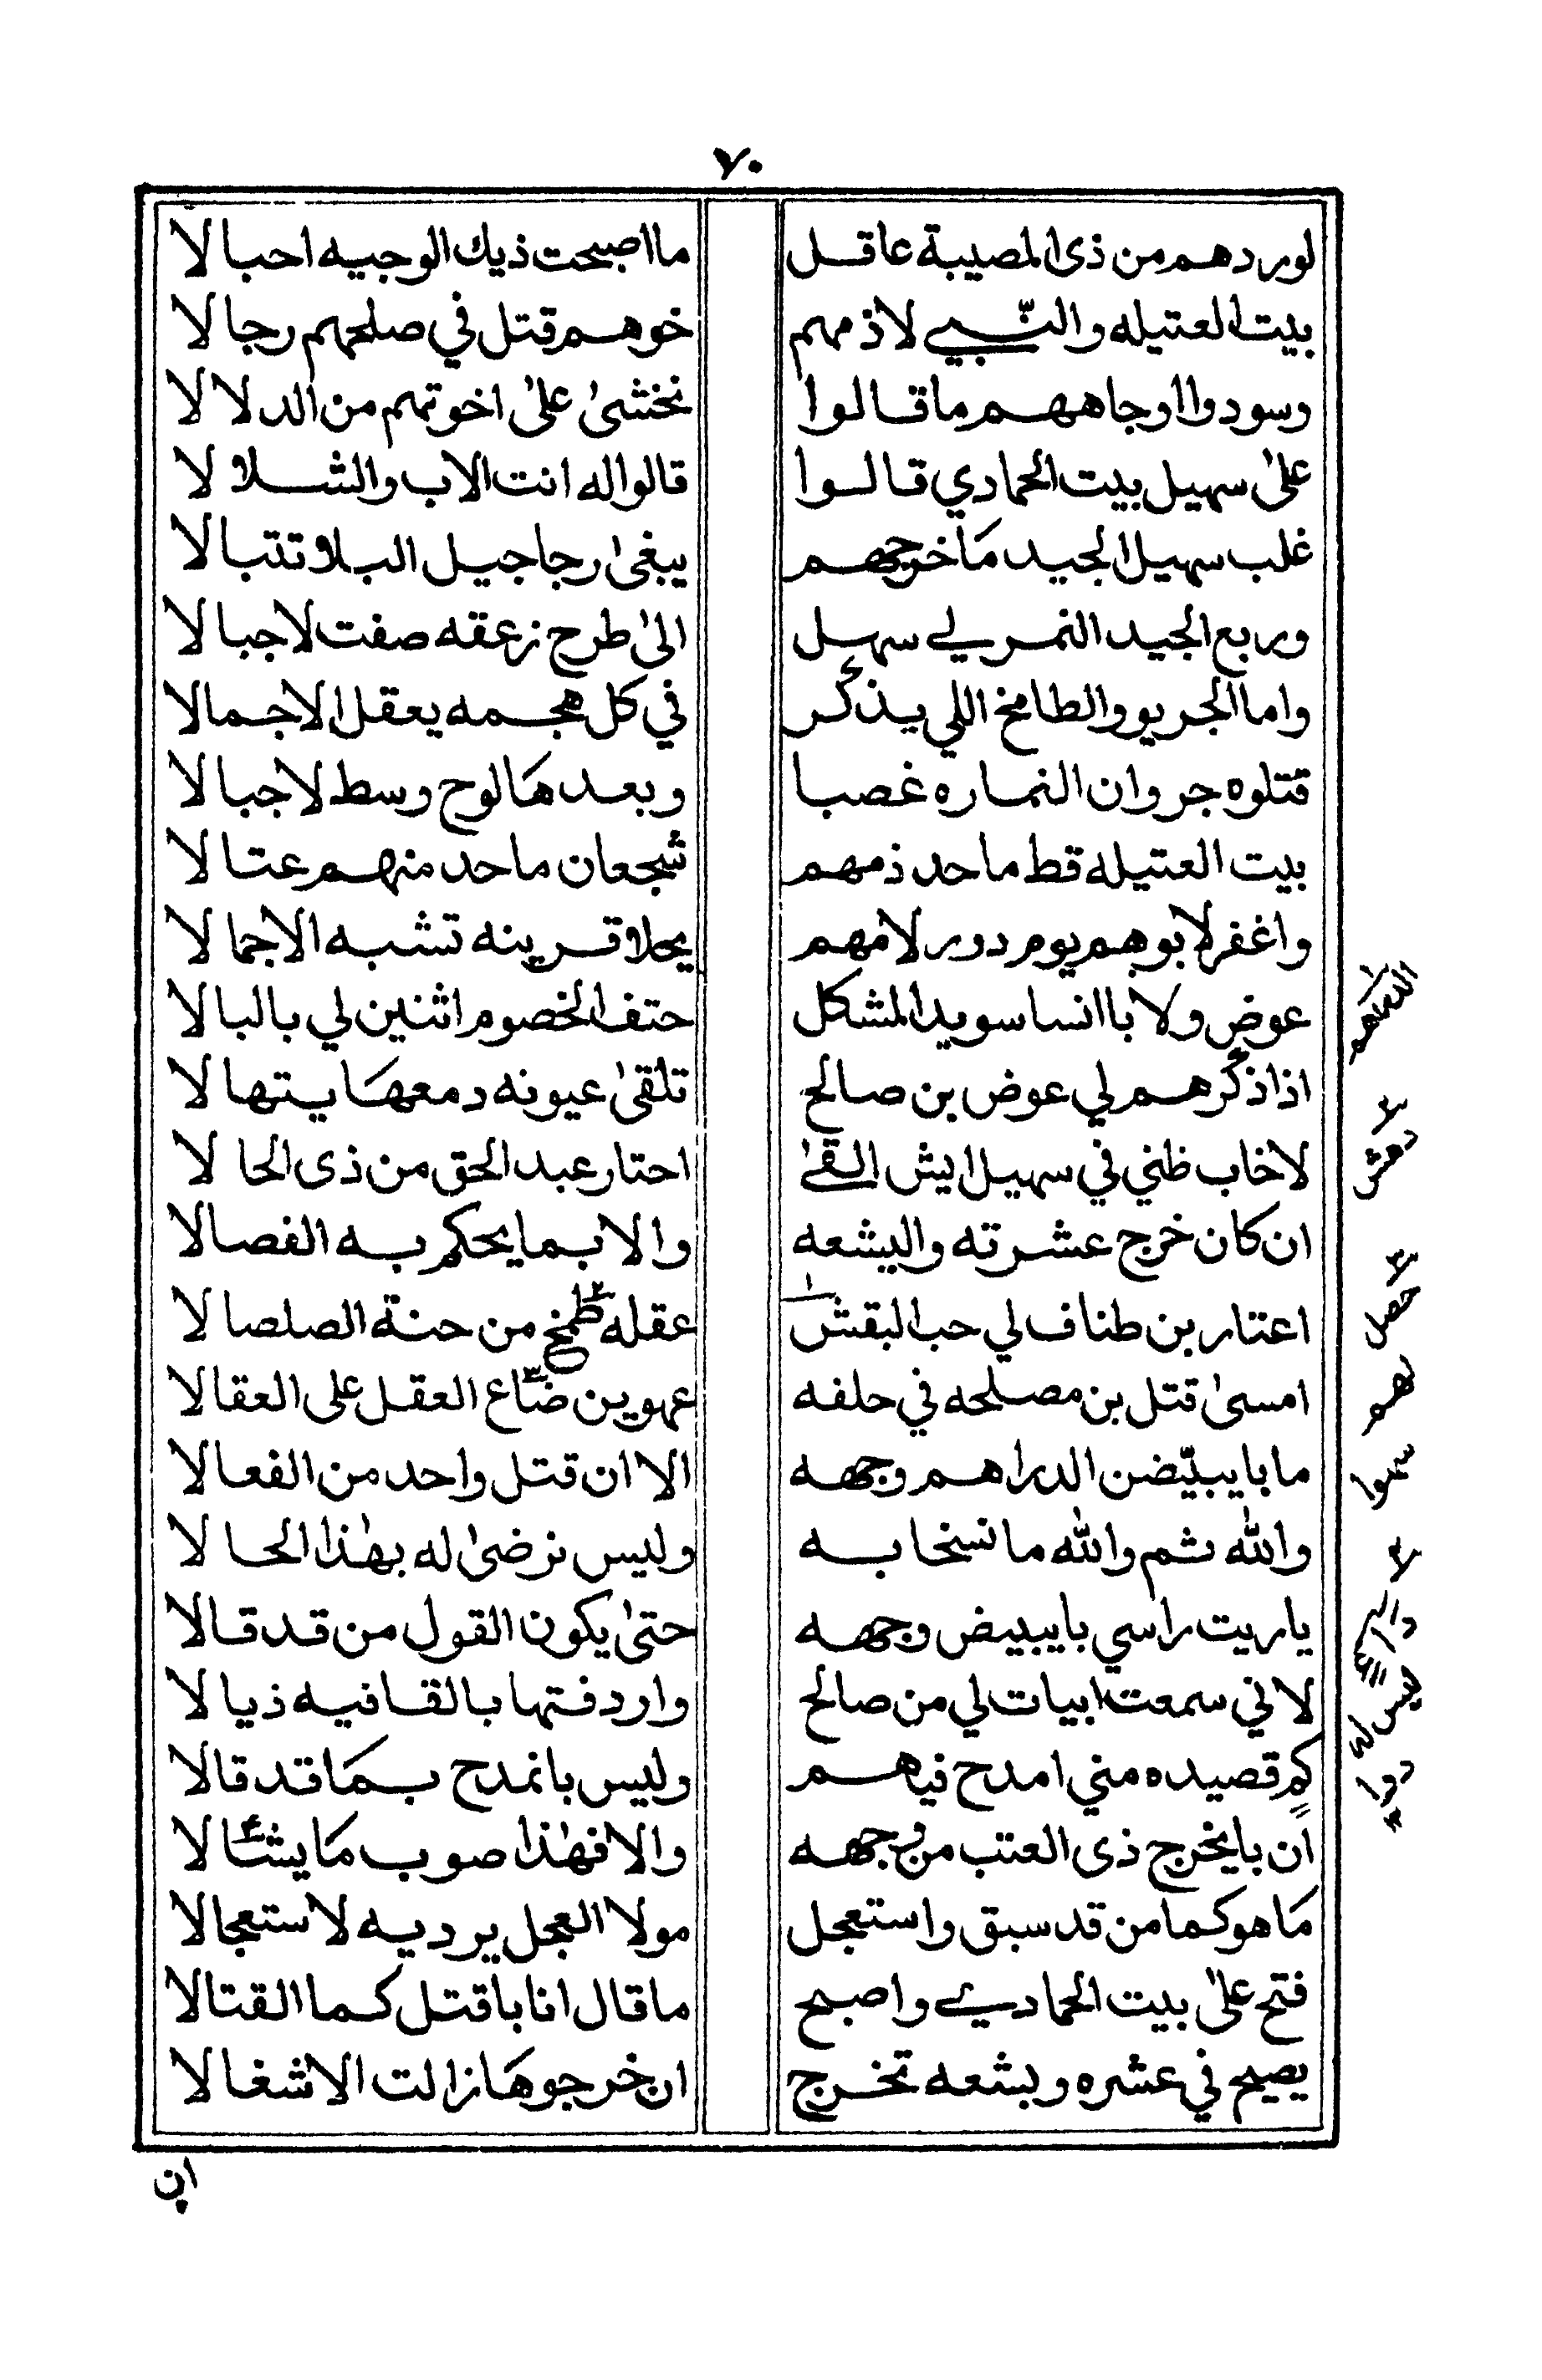 ٧٠
لوردهم من ذى المصيبة عاقل ما اصبحت ذيك الوجيه احبالا
بيت العتيله والنبي لاذمهم خوهم قتل في صلحهم رجالا
وسودوا اوجاههم ما قالوا نخشىٰ علىٰ اخوتهم من الدلالا
علىٰ سهيل بيت الحمادي قالوا قالوا له انت الاب والشلالا
غلب سهيل الجيد ما خرجهم يبغىٰ رجاجيل البلا تتبالا
وربع الجيد النمر لي سهل الىٰ طرح زعقه صفت لاجبالا
واما الجريو والطامخ اللي يذكر في كل هجمه يعقل الاجمالا
قتلوه جروان النماره غصبا وبعدها لوح وسط لاجبالا
بيت العتيله قط ماحد ذمهم شجعان ماحد منهم عتالا
واغفر لابوهم يوم دور لامهم يحلا قرينه تشبه الاجمالا
عوض ولا باانسا سويد المشكل حتف الخصوم اثنين لي بالبالا
اذا ذكرهم لي عوض بن صالح تلقىٰ عيونه دمعها يتهالا
لاخاب ظني في سهيل ايش القىٰ احتار عبد الحق من ذى الحالا
ان كان خرج عشرته والبشعه والا بما يحكم به الفصالا
اعتار بن طناف لي حب البقشٰ عقله طمخ من حنة الصلصالا
امسىٰ قتل بن مصلحه في حلفه عهوين ضاع العقل على العقالا
ما بايبيّضن الدراهم وجهه الا ان قتل واحد من الفعالا
والله ثم والله ما نسخا به وليس نرضىٰ له بهٰذا الحالا
ياريت راسي بايبيض وجهه حتىٰ يكون القول من قد قالا
لاني سمعت ابيات لي من صالح واردفتها بالقافيه ذيالا
كم قصيده مني امدح فيهم وليس بانمدح بما قد قالا
ان بايخرج ذى العتب من وجهه والا فهٰذا صوب ما يشالا
ما هو كما من قد سبق واستعجل مولا العجل يرديه لاستعجالا
فتح علىٰ بيت الحمادي واصبح ما قال انا باقتل كما القتالا
يصيح في عشره وبشعه تخرج ان خرجوها زالت الاشغالا
ان